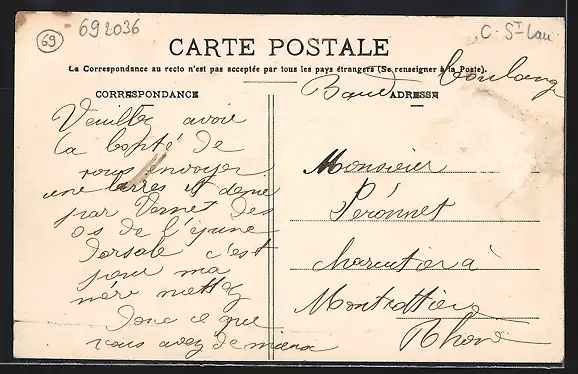 69
692036
C. St Lau
CARTE POSTALE
La Correspondance au recto n'est pas acceptée par tous les pays étrangers (Se renseigner à la Poste).
CORRESPONDANCE
ADRESSE
Veuillez avoir
la bonté de
nous envoyer
une et demie
par Vernet des
os de l'épine
dorsale c'est
pour ma
mère mettez
donc ce que
vous avez de mieux
Monsieur
Peronnet
charcutier à
Montrottier
Rhone